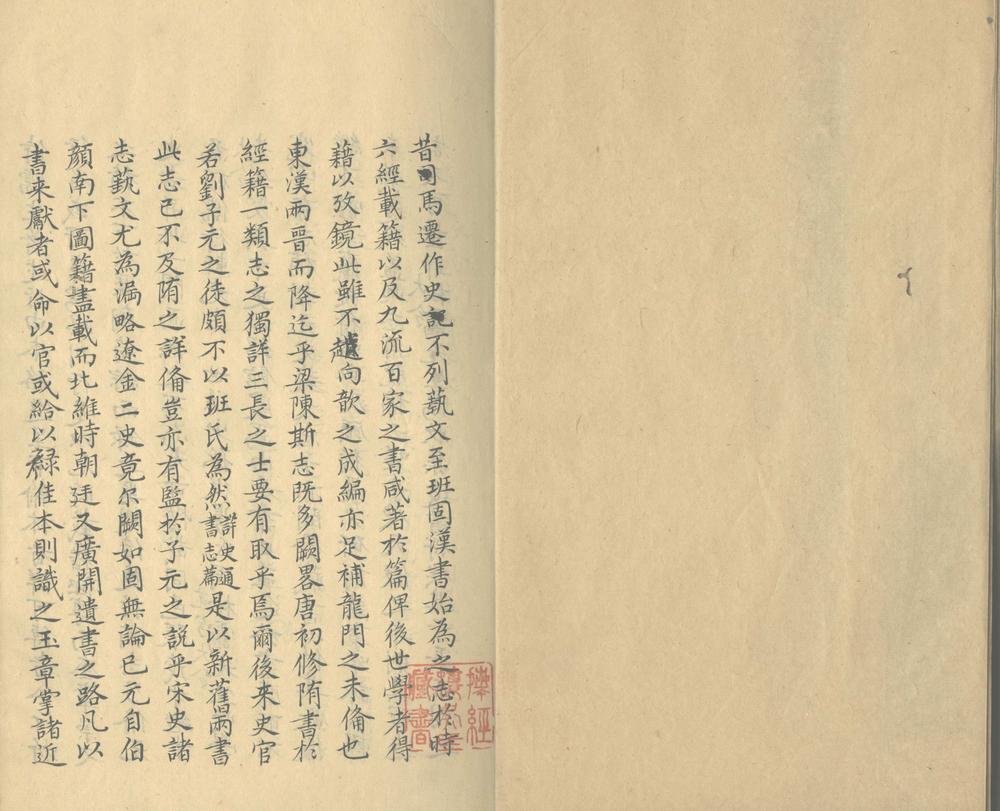 昔司馬遷作史記不列藝文至班固漢書始為之志於時
六經載籍以及九流百家之書咸著於篇俾後世學者得
藉以攷鏡此雖不越向歆之成編亦足補龍門之未俻也
東漢兩晉而降迄乎梁陳斯志既多闕畧唐初修隋書於
經籍一類志之獨詳三長之士要有取乎焉爾後来史官
若劉子元之徒頗不以班氏為然詳史通書志篇是以新舊兩書
此志已不及隋之詳俻豈亦有監於子元之說乎宋史諸
志蓺文尤為漏略遼金二史竟尔闕如固無論已元自伯
顏南下圖籍盡載而北維時朝廷又廣開遺書之路凡以
書来獻者或命以官或給以祿佳本則識之玉章掌諸近